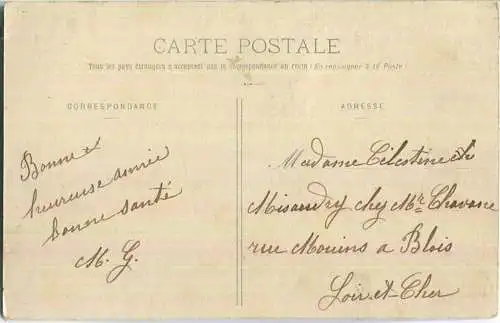 CARTE POSTALE
Tous les pays étrangers n'acceptent pas la correspondance au recto (Se renseigner à la Poste)
CORRESPONDANCE
Bonne et
heureuse année
bonne santé
M. G.
ADRESSE
Madame Célestine
Misandry chez Mr Chavane
rue Mouins a Blois
Loir-et-Cher